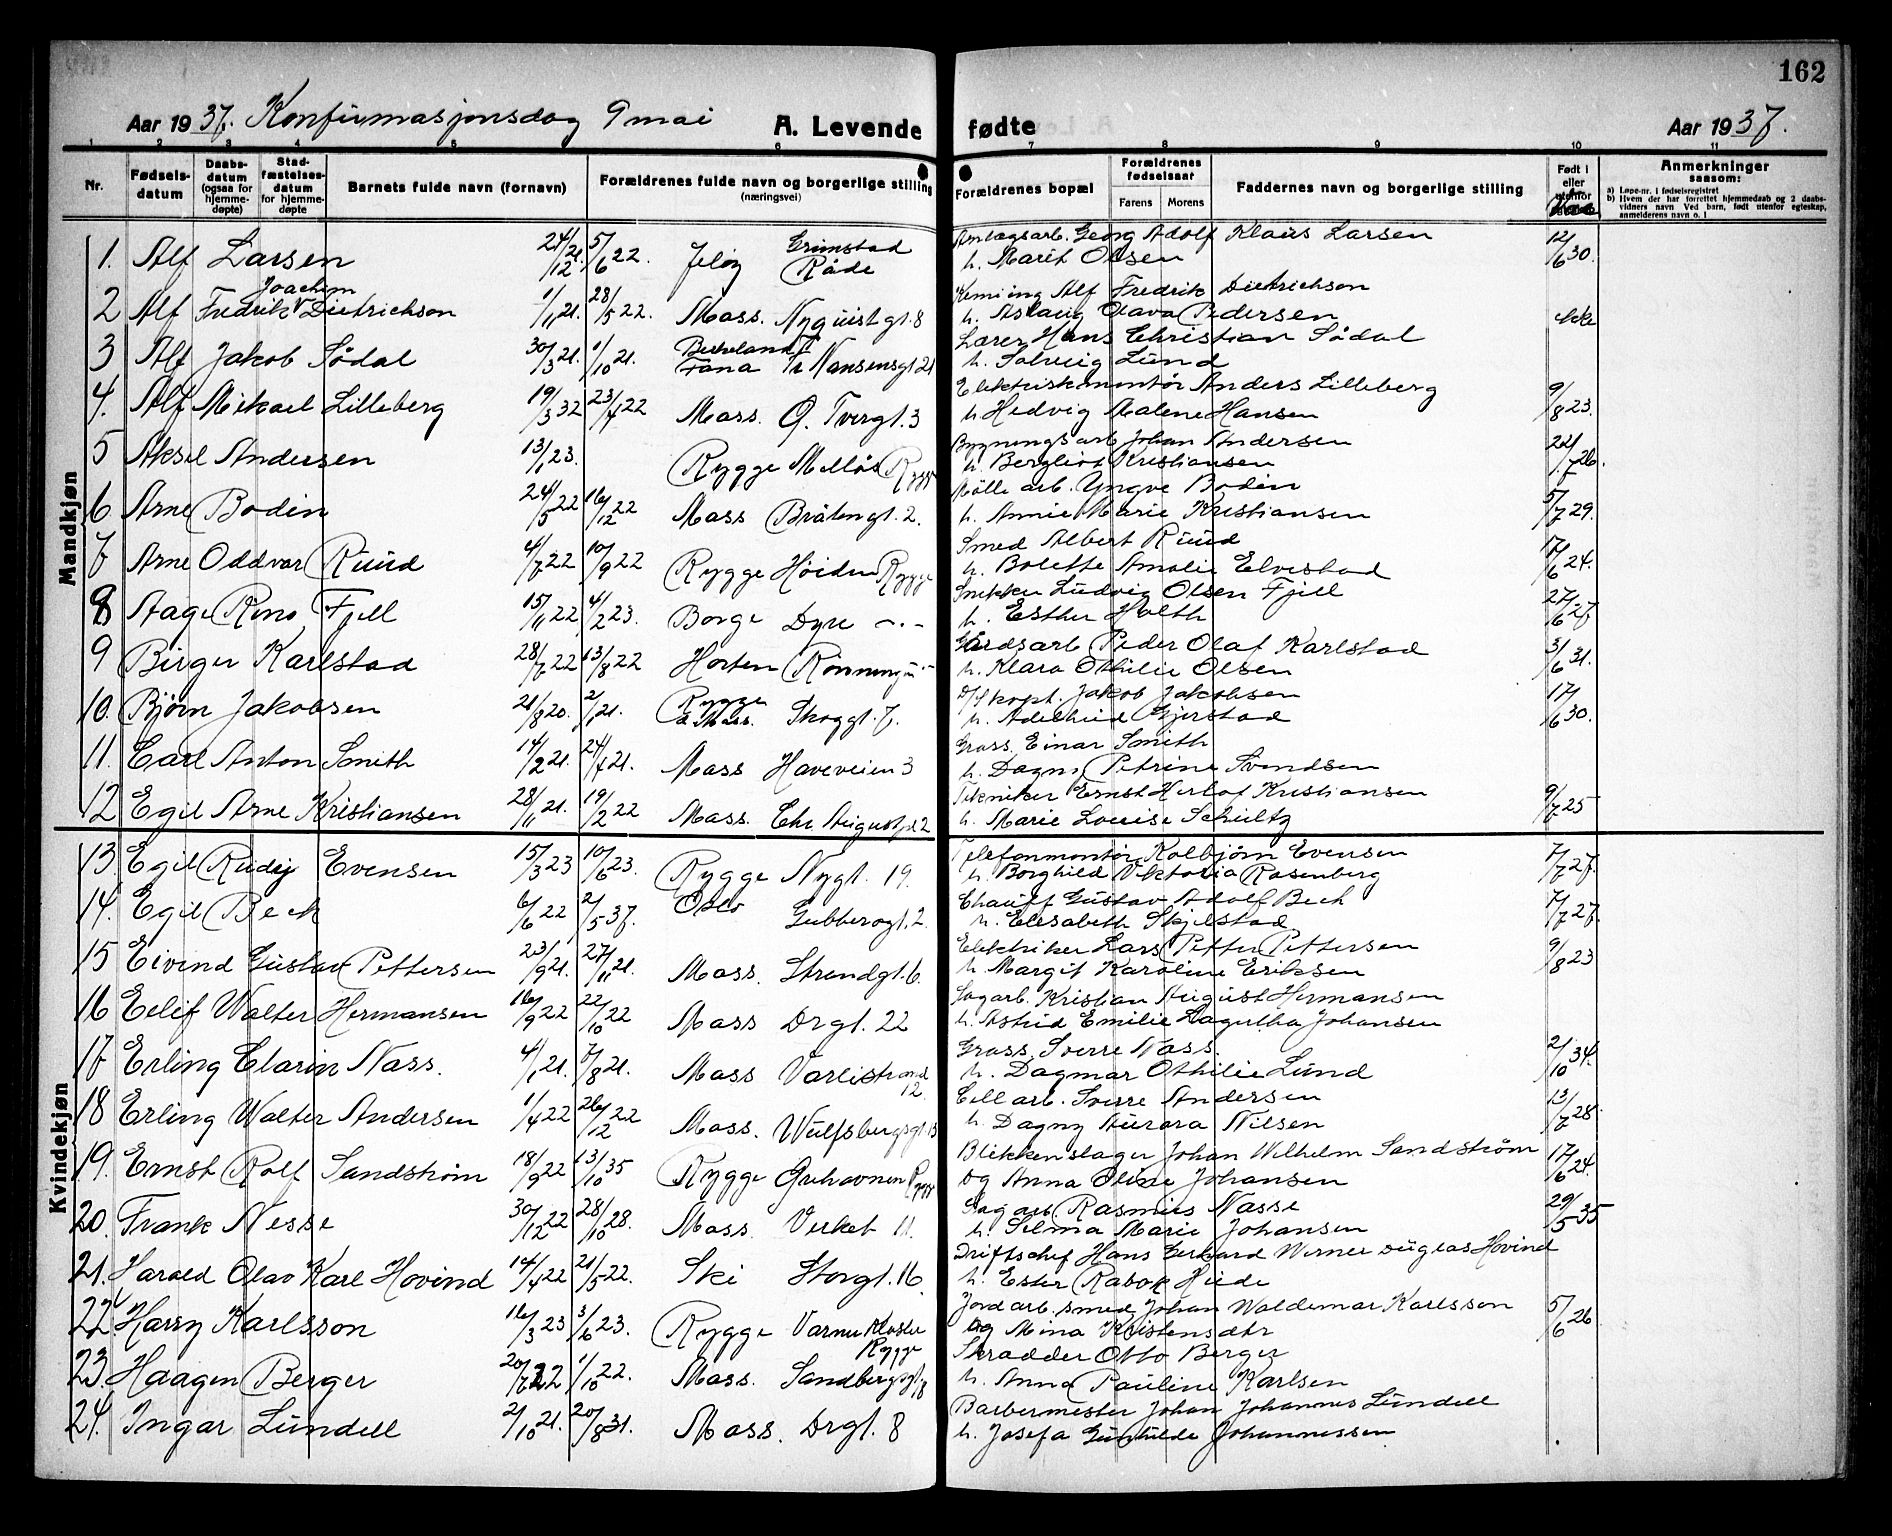 162
Aar 1937. Konfirmasjonsdag 9 mai A. Levende fødte Aar 1937.
1 2 3 4 5 6 7 8 9 10 11
Nr. Fødselsdatum Daabsdatum (ogsaa for hjemmedøpte) Stadfæstelsesdatum for hjemmedøpte Barnets fulde navn (fornavn) Forældrenes fulde navn og borgerlige stilling (næringsvei) Forældrenes bopæl Forældrenes fødselsaar Farens Morens Faddernes navn og borgerlige stilling Født i eller utenfor Anmerkninger saasom:
a) Løpe-nr. i fødselsregistret
b) Hvem der har forrettet hjemmedaab og 2 daabsvidners navn Ved barn, født utenfor egteskap, anmelderens navn o. l
Mandkjøn
1. Alf Larsen 24/12 21. 5/6 22. Jeløy Grimstad Råde Anlægsarb. Georg Adolf Klaus Larsen 12/6 30.
h. Marit Olsen
2 Alf Fredrik Joachim Dietrichson 1/11 21. 28/5 22. Moss. Nyquistgt. 8 Kemiing Alf Fredrik Dietrichson
h. Aslaug Olava Pedersen ikke
3 Alf Jakob Sødal 30/3 21. 1/10 21. Birkeland Fana Fr Nansensgt 21 Lærer Hans Christian Sødal
h. Solveig Lund
4. Alf Mikael Lilleberg 19/3 32 23/4 22 Moss. O. Tvergt. 3 Elektriskmontør Anders Lilleberg 9/8 23.
h. Hedvig Malene Hansen
5 Aksel Andersen 13/1 23. Rygge Melløs Rygge Bygningsarb Johan Andersen
h. Bergliot Kristiansen
6 Arne Bodin 24/5 22 16/12 22 Moss Bråtengt. 2. Mølle arb. Yngve Bodin 5/7 29.
h. Annie Marie Kristiansen
7 Arne Oddvar Ruud 4/7 22 10/9 22 Rygge Høiden Rygge Smed Albert Ruud 17/6 24.
h. Bolette Amalie Elvestad
8 Aage Reno Fjell 15/11 22 4/2 23. Borge Dyre -.- Snikker Ludvig Olsen Fjell 27/6 27.
h. Esther Holth
9 Birger Karlstad 28/7 22 13/8 22 Horten Rønningen Gårdsarb Peder Olaf Karlstad 3/6 31.
h. Klara Othilie Olsen
10. Bjørn Jakobsen 21/8 20. 2/1 21. Rygge Moss. Skoggt. 7. Jakob Jakobsen 17/6 30.
h. Adelheid Gjerstad
11. Carl Anton Smith 14/2 21. 24/4 21. Moss Haveveien 3 Gross. Einar Smith
h. Dagny Petrine Svendsen
12 Egil Arne Kristiansen 28/11 21. 19/2 22 Moss. Chr Augustspl 2 Tekniker Ernst Herlof Kristiansen 9/7 25
h. Marie Louise Schultz
13. Egil Rudy Evensen 15/3 23 10/6 23. Rygge Nygt. 19. Telefonmontør Kolbjørn Evensen 7/7 27.
h. Borghild Viktoria Rosenberg
14. Egil Beck 6/6 22 2/5 37. Oslo Gubberogt. 2. Chauff Gustav Adolf Beck 7/7 27.
h. Elisabeth Skjelstad
15 Eivind Gustav Pettersen 23/9 21. 27/11 21. Moss. Strandgt. 6. Elektriker Lars Petter Pettersen 9/8 23
h. Margit Karoline Eriksen
16 Eilif Walter Hermansen 16/9 22 22/10 22 Moss Drgt. 22 Sagarb. Kristian August Hermansen
h. Astrid Emilie Lagutha Johansen
Kvindekjøn
17 Erling Clarin Nass. 4/1 21. 7/8 21. Moss Varlistrand 12. Gross. Sverre Nass. 2/10 34.
h. Dagmar Othilie Lund
18 Erling Walter Andersen 1/4 22 26/12 22 Moss. Wulfsbergsgt 13 Cell arb. Sverre Andersen 13/7 28.
h. Dagny Aurora Nilsen
19. Ernst Rolf Sandstrøm 18/9 22 13/10 35 Rygge Rygge Blikkenslager Johan Wilhelm Sandstrøm 17/6 24.
og Anna Oline Johansen
20. Frank Nesse 30/12 22 28/10 28. Moss. Verket 11. Sagarb. Rasmus Nasse 29/5 35
h. Selma Marie Johansen
21. Harald Olav Karl Hovind 14/4 22 21/5 22. Ski Storgt. 16 Driftschef Hans Gerhard Werner Duglas Hovind
h. Ester Rabok Hiede
22. Harry Karlsson 16/3 23 3/6 23. Rygge Varnu Kloster Rygge Jordarb. smed Johan Waldemar Karlsson 5/6 26
og Mina Kristensdtr
23. Haagen Berger 20/7 22 1/10 22. Moss. Sandbergsgt 18 Skrædder Otto Berger
h. Anna Pauline Karlsen
24. Ingar Lundell 2/10 21. 20/8 31. Moss. Drgt. 8 Barbermester Johan Johannes Lundell
h. Josefa Gunhilde Johannessen